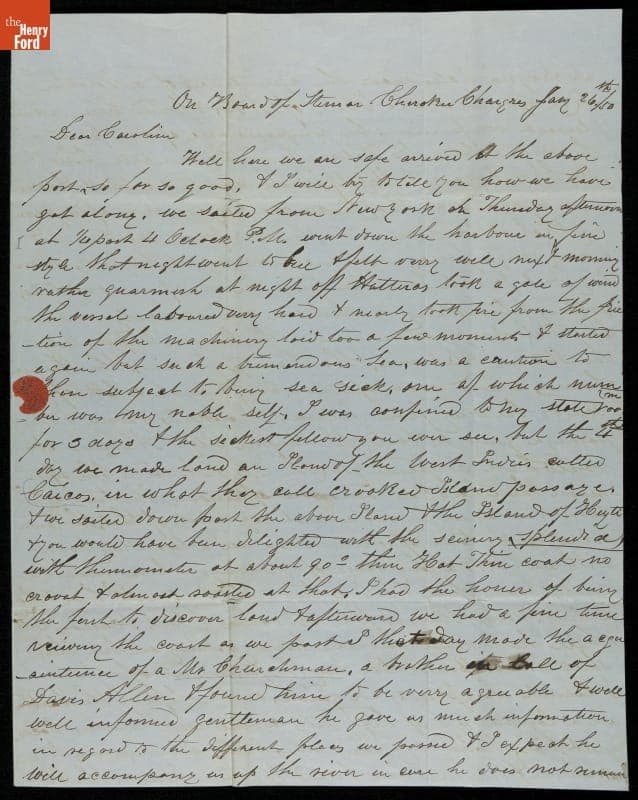 the
Henry
Ford
On Board of Steamer Cherokee Chargres Jany 26th/50
Dear Caroline
Well here we are safe arrived at the above
port, so far so good, & I will try to tell you how we have
got along. we sailed from New York on Thursday afternoon
at ½ past 4 Oclock P.M. went down the harbour in fine
style that night went to bed & slept verry well next morning
rather quarmish at night off Hatteras took a gale of wind
the vessel laboured very hard & nearly took fire from the fric
-tion of the machinery laid too a few moments & started
again but such a tremendous Sea, was a caution to
them subject to being sea sick, one of which num
ber was my noble self. I was confined to my state room
for 3 days & the sickest fellow you ever see. but the 4th
day we made land an Iland of the West Indies called
Caicos, in what they call crooked Island passage.
& we sailed down past the above Iland & the Island of Hayti
& you would have been delighted with the scinery splendid
with thermometer at about 90° thin Hat Thin coat no
cravat & almost roasted at that, I had the honor of being
the first to discover land & afterward we had a fine time
veiwing the coast as we past I that day made the acqu
-aintence of a Mr Churchman, a brother in law of
Davis Allen & found hime to be verry agreeable & well
well informed gentleman he gave us much information
in regard to the different places we passed & I expect he
will accompany us up the river in case he does not remain